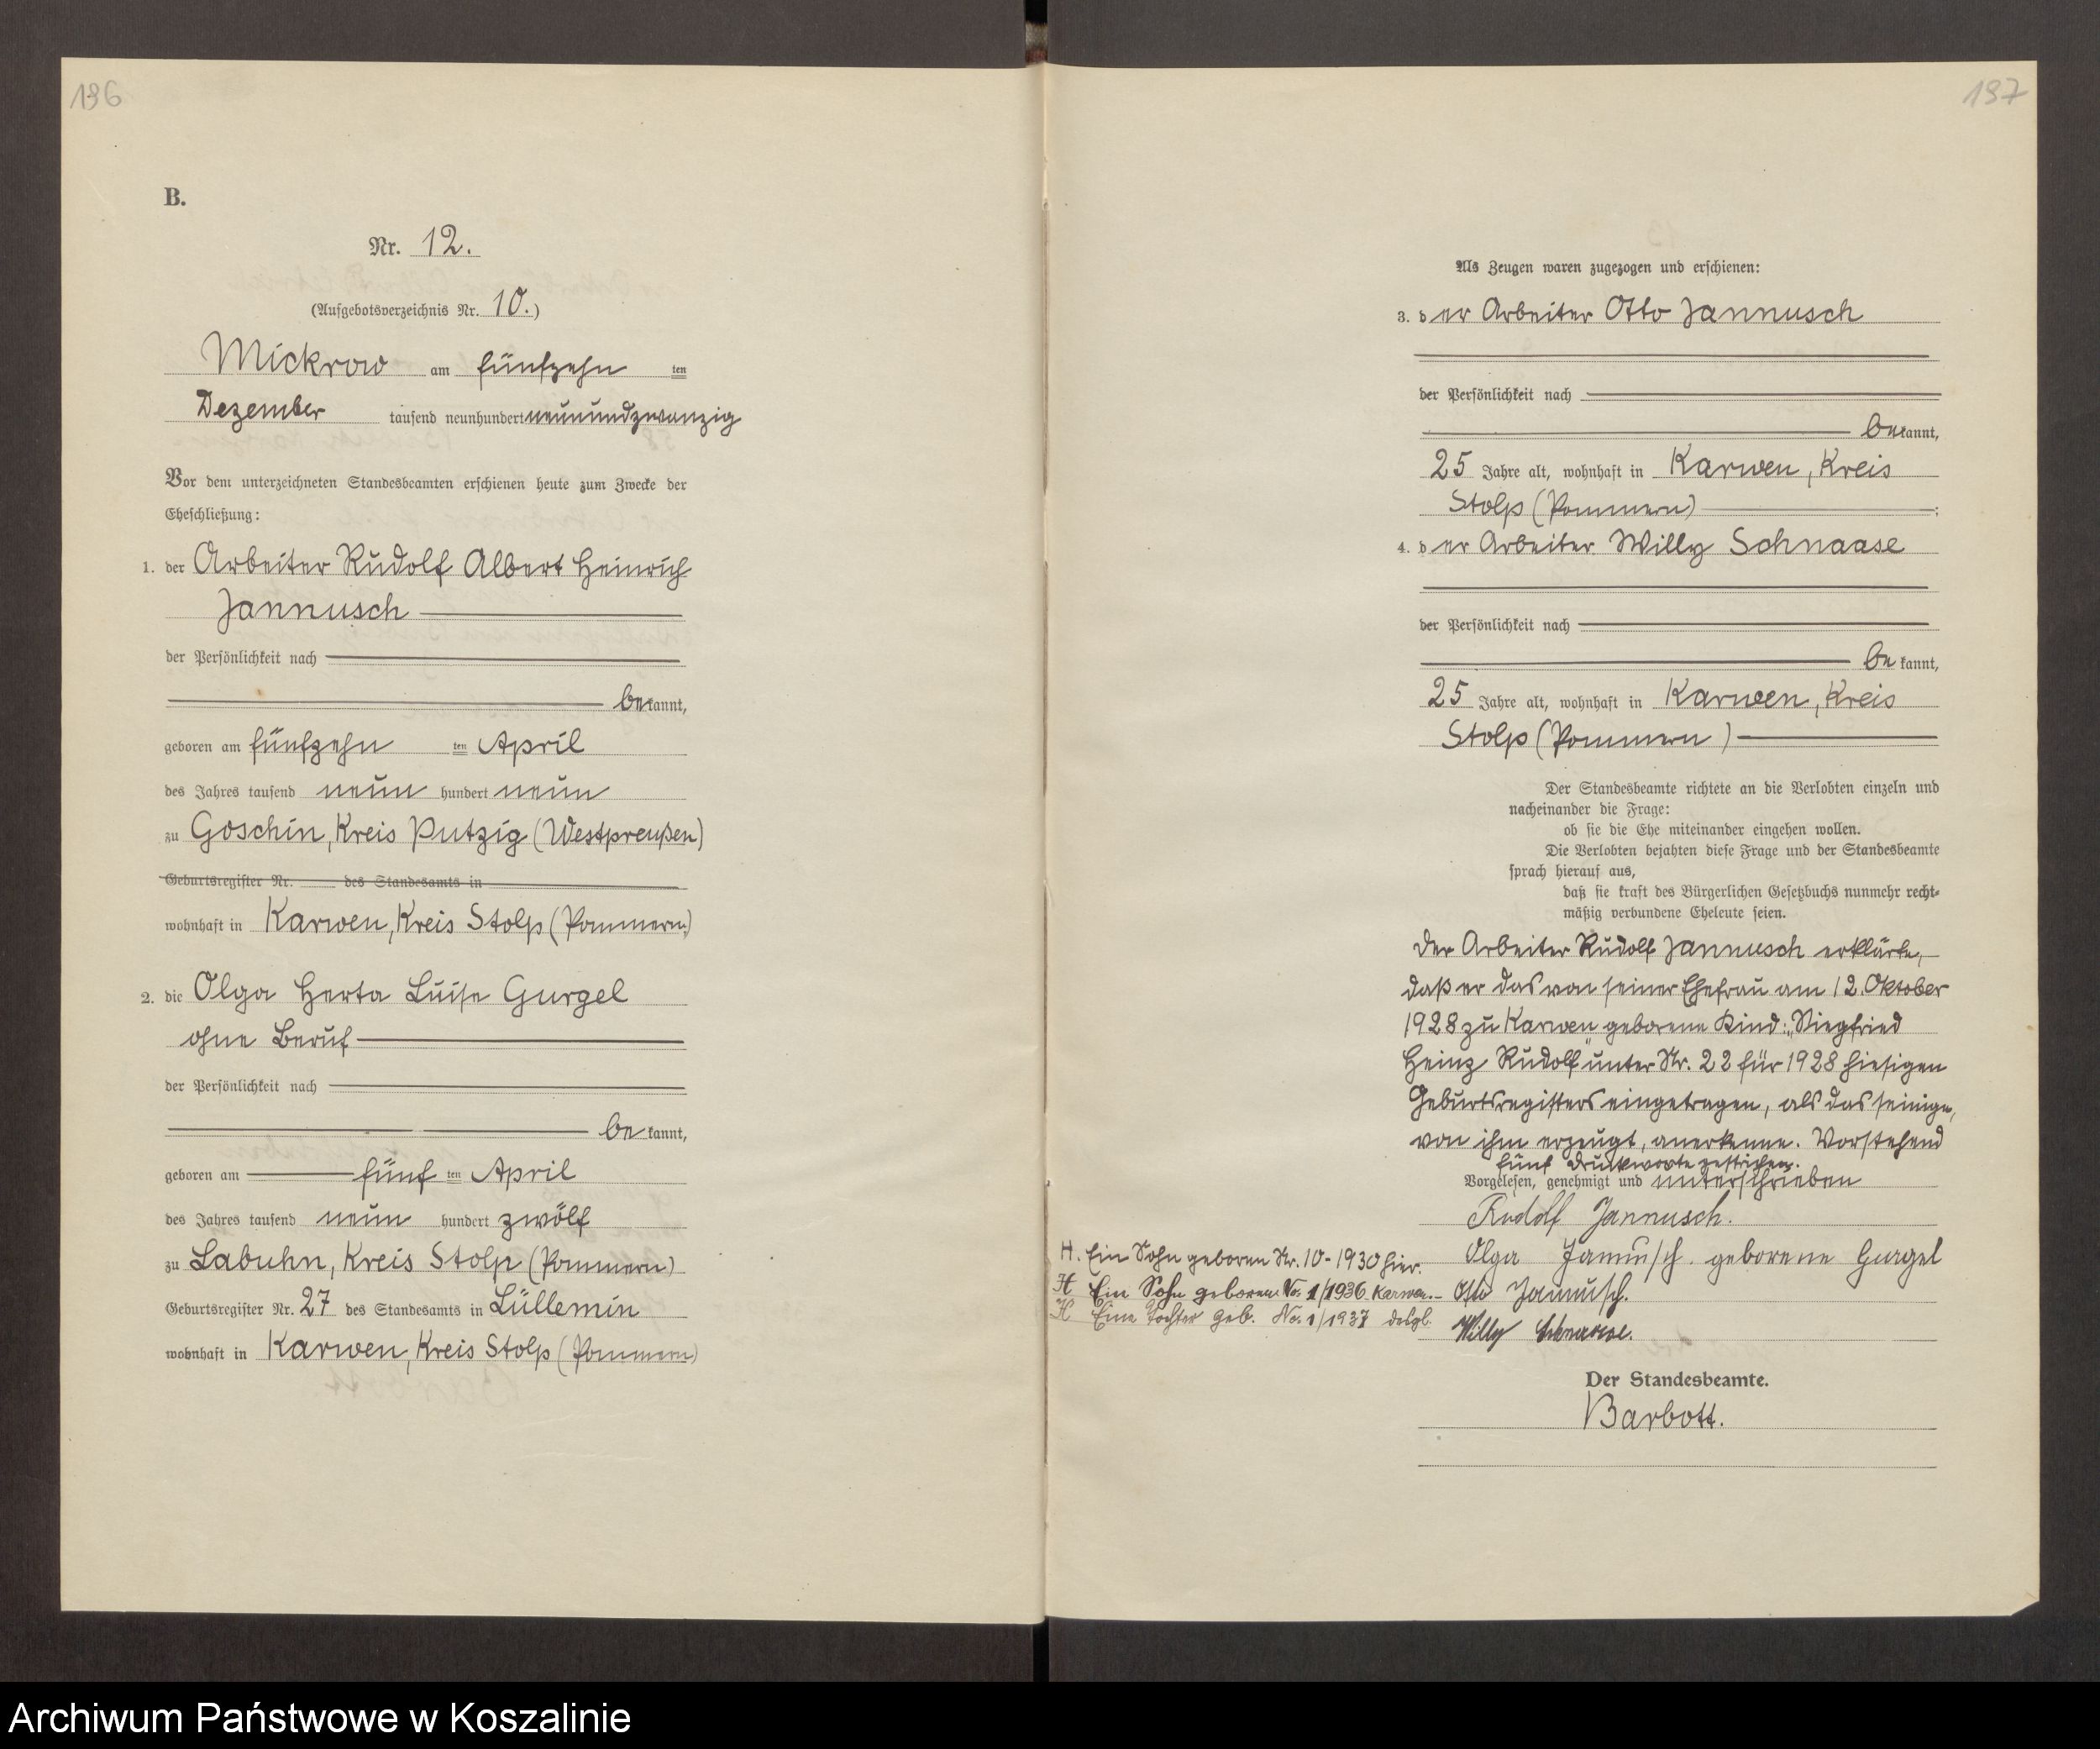 196
B.
Nr. 12.
(Aufgebotsverzeichnis Nr. 10.)
Mickrow am fünfzehn ten
Dezember tausend neunhundert neunundzwanzig
Vor dem unterzeichneten Standesbeamten erschienen heute zum Zwecke der
Eheschließung:
1. der Arbeiter Rudolf Albert Heinrich
Jannusch
der Persönlichkeit nach
bekannt,
geboren am fünfzehn ten April
des Jahres tausend neun hundert neun
zu Goschin, Kreis Putzig (Westpreußen)
Geburtsregister Nr. des Standesamts in
wohnhaft in Karwen, Kreis Stolp (Pommern)
2. die Olga Herta Luise Gurgel
ohne Beruf
der Persönlichkeit nach
bekannt,
geboren am fünf ten April
des Jahres tausend neun hundert zwölf
zu Labuhn, Kreis Stolp (Pommern)
Geburtsregister Nr. 27 des Standesamts in Lüllemin
wohnhaft in Karwen, Kreis Stolp (Pommern)
197
Als Zeugen waren zugezogen und erschienen:
3. der Arbeiter Otto Jannusch
der Persönlichkeit nach
bekannt,
25 Jahre alt, wohnhaft in Karwen, Kreis
Stolp (Pommern) ;
4. der Arbeiter Willy Schnaase
der Persönlichkeit nach
bekannt,
25 Jahre alt, wohnhaft in Karwen, Kreis
Stolp (Pommern)
Der Standesbeamte richtete an die Verlobten einzeln und
nacheinander die Frage:
ob sie die Ehe miteinander eingehen wollen.
Die Verlobten bejahten diese Frage und der Standesbeamte
sprach hierauf aus,
daß sie kraft des Bürgerlichen Gesetzbuchs nunmehr recht-
mäßig verbundene Eheleute seien.
Der Arbeiter Rudolf Jannusch erklärte,
daß er das von seiner Ehefrau am 12. Oktober
1928 zu Karwen geborene Kind: „Siegfried
Heinz Rudolf" unter Nr. 22 für 1928 hiesigen
Geburtsregisters eingetragen, als das seinige,
von ihm erzeugt, anerkenne. Vorstehend
fünf Druckworte gestrichen.
Vorgelesen, genehmigt und unterschrieben
Rudolf Jannusch.
Olga Jannusch geborene Gurgel
H. Ein Sohn geboren Nr. 10-1930 hier.
H Ein Sohn geboren No. 1/1936 Karwen.-
H Eine Tochter geb. No. 1/1937 desgl.
Otto Jannusch.
Willy Schnaase.
Der Standesbeamte.
Barbott.
Archiwum Państwowe w Koszalinie